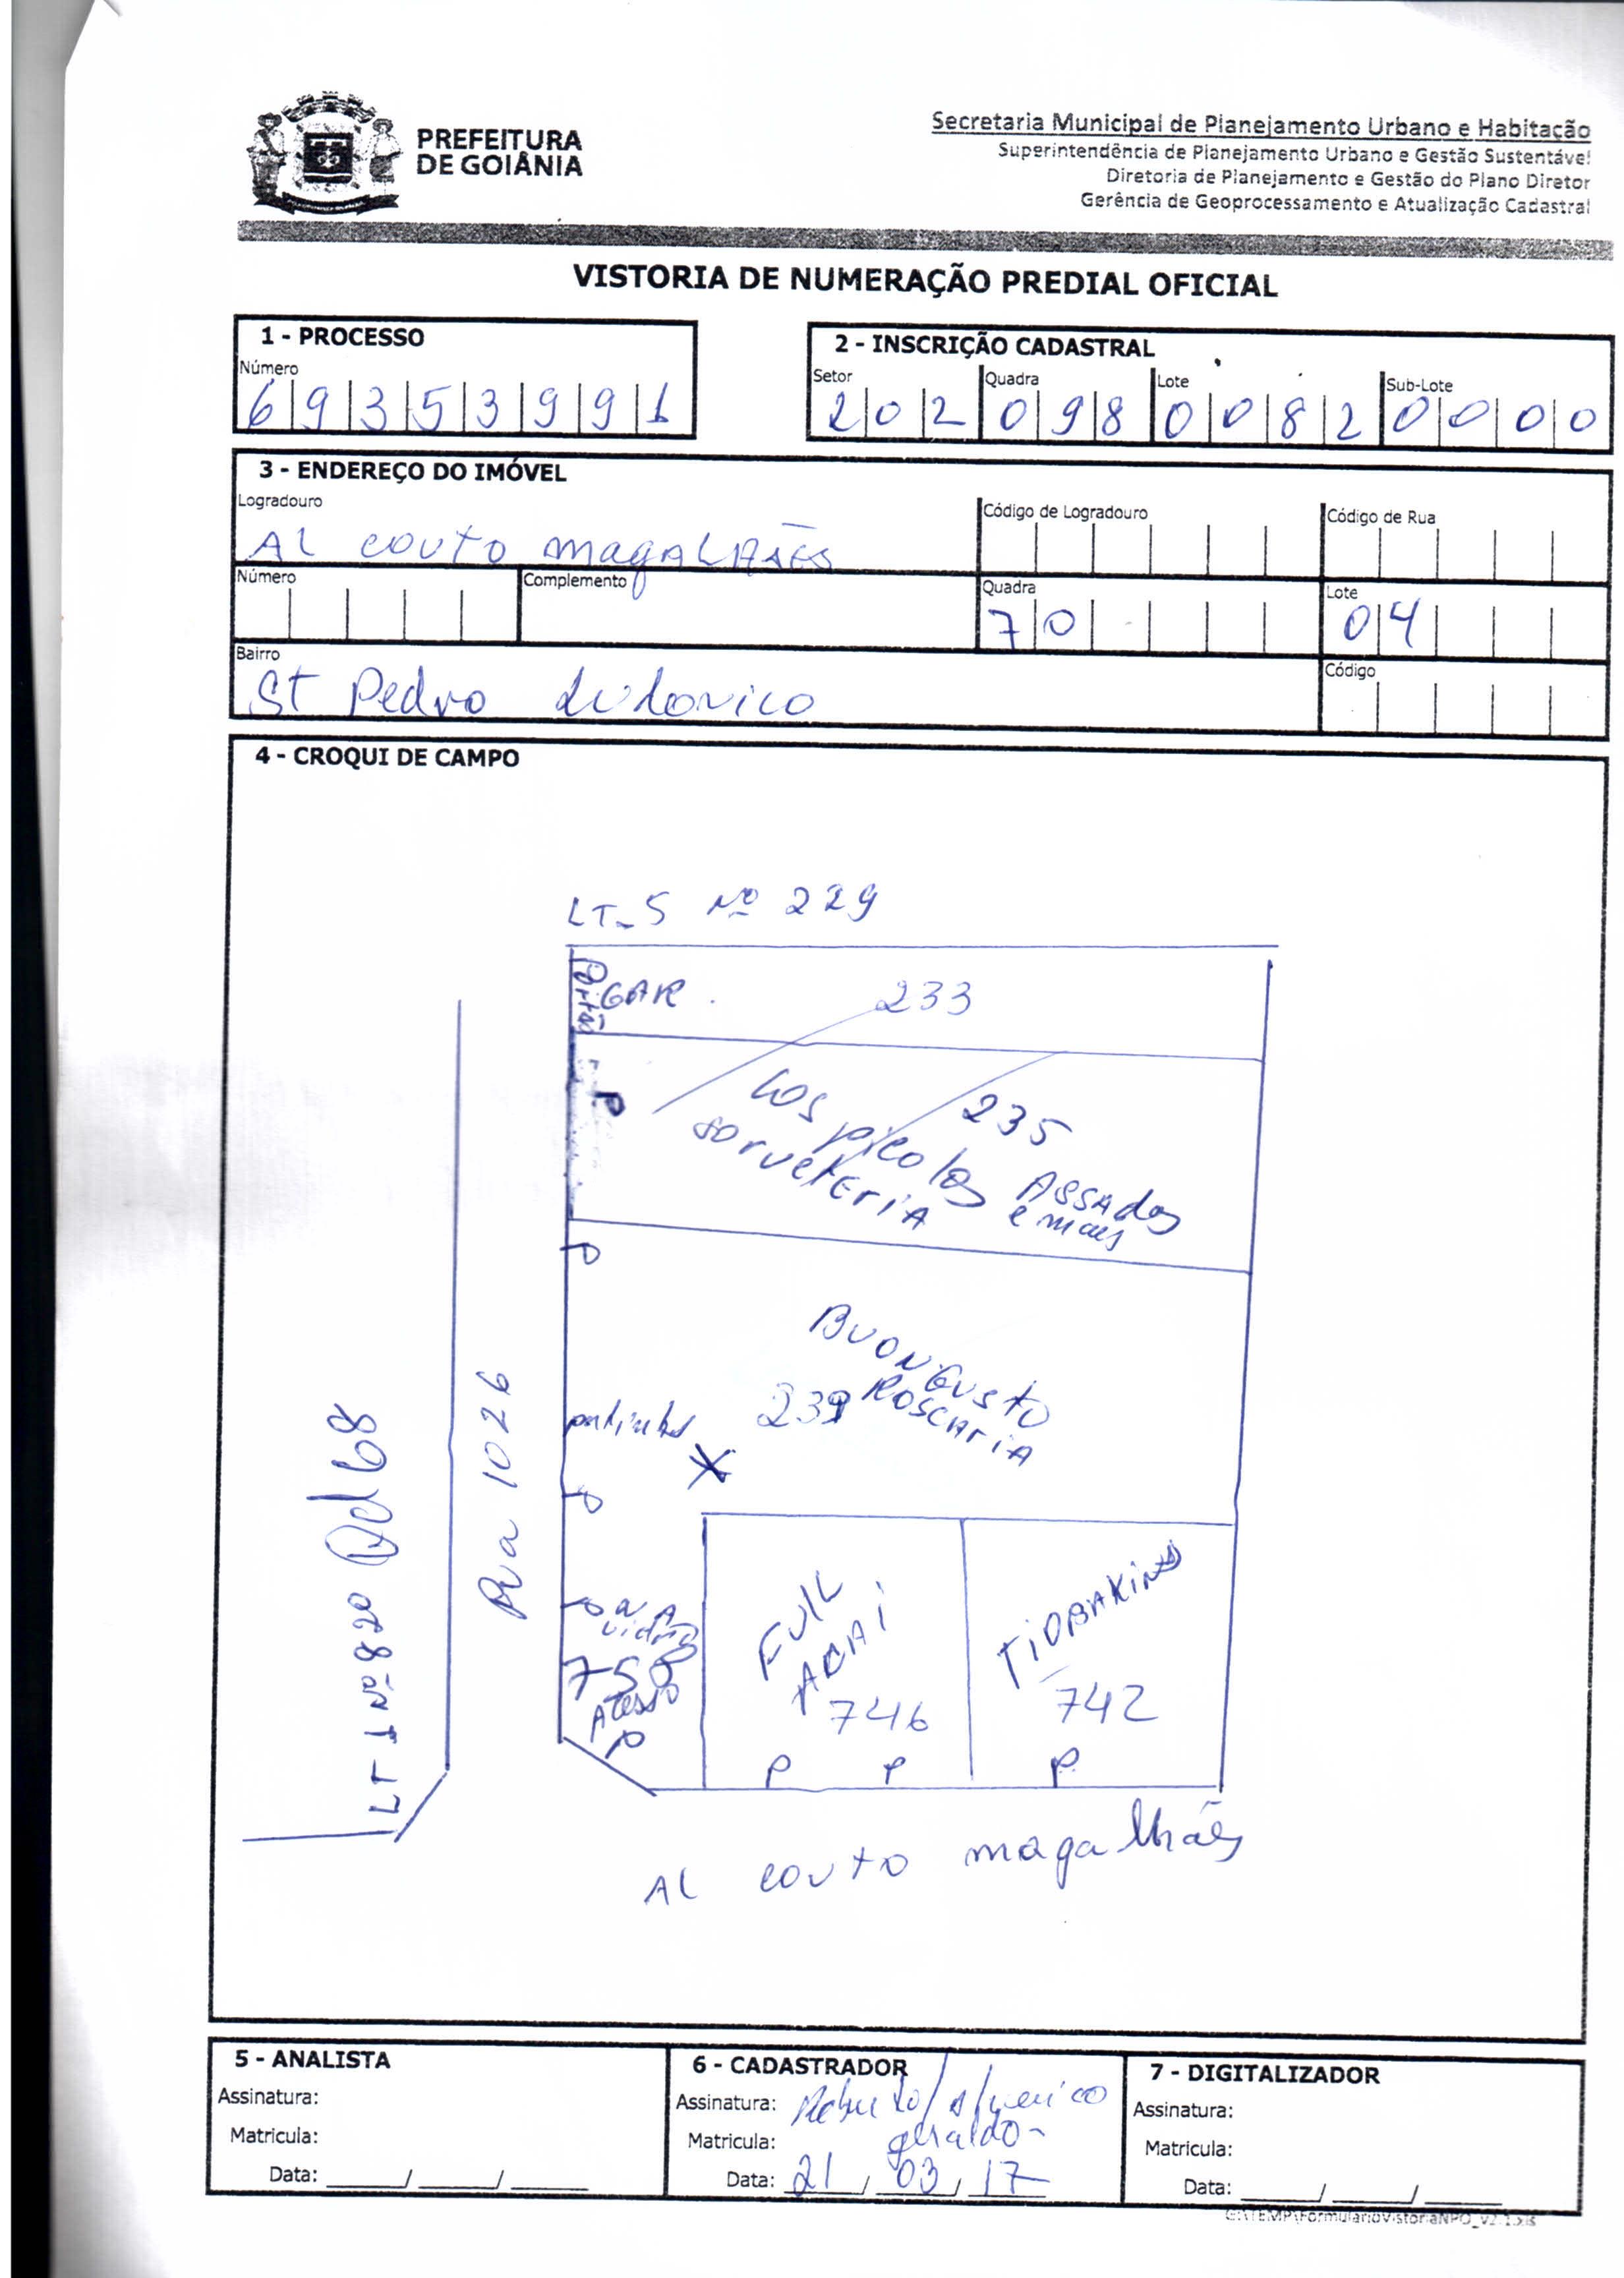 PREFEITURA
DE GOIÂNIA
Secretaria Municipal de Planejamento Urbano e Habitação
Superintendência de Planejamento Urbano e Gestão Sustentável
Diretoria de Planejamento e Gestão do Plano Diretor
Gerência de Geoprocessamento e Atualização Cadastral
VISTORIA DE NUMERAÇÃO PREDIAL OFICIAL
1 - PROCESSO
Número
69353991
2 - INSCRIÇÃO CADASTRAL
Setor Quadra Lote Sub-Lote
202 098 0082 0000
3 - ENDEREÇO DO IMÓVEL
Logradouro Código de Logradouro Código de Rua
AL couto magALHÃES
Número Complemento Quadra Lote
70 04
Bairro Código
St Pedro Ludovico
4 - CROQUI DE CAMPO
LT-5 Nº 229
Portão
GAR. 233
P
Los picolos
sorveteriA
235
ASSAdos
e mais
P
BUONGUSto
ROSCAriA
239
X
P
Rua 1026
LT-1 nº 820 Qd 68
P
vidro
750
Acesso
P
FULL
ACAI
746
P P
TIOBAKINS
742
P
AL couto magalhães
5 - ANALISTA
Assinatura:
Matricula:
Data: ____/____/____
6 - CADASTRADOR
Assinatura:
geraldo
Matricula:
Data: 21/03/17
7 - DIGITALIZADOR
Assinatura:
Matricula:
Data: ____/____/____